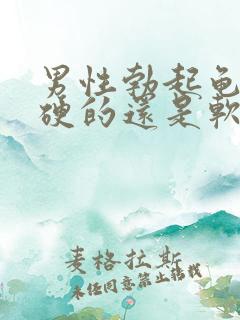 男性勃起龟
硬的還是軟
麦格拉斯
未经同意禁止转载